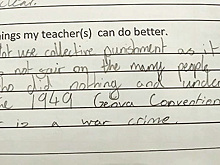 ings my teacher(s) can do better.
use collective punishment as it
not fair on the many people
ho did nothing and under
e 1949 Geneva Convention
t is a war crime.